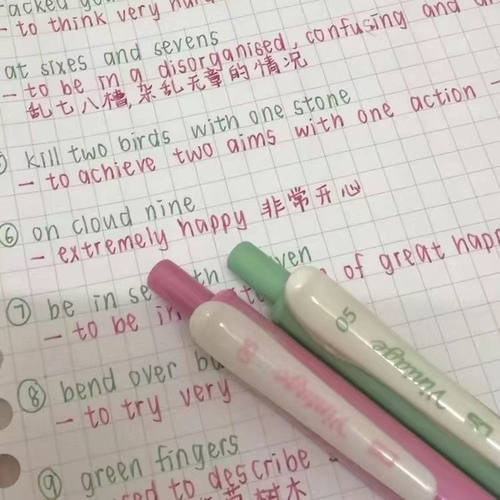 - to think very
at sixes and sevens
- to be in a disorganised, confusing and
乱七八糟,杂乱无章的情况
kill two birds with one stone
- to achieve two aims with one action
⑥ on cloud nine
- extremely happy 非常开心
⑦ be in
- to be in of great
⑧ bend over
- to try very
⑨ green fingers
to describe
05 Vintage
Vintage